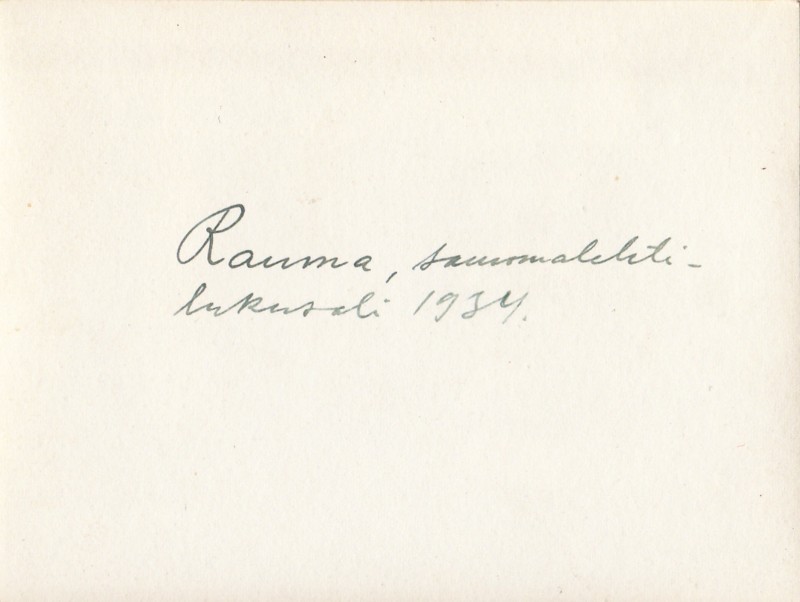 Rauma, sanomalehti-
lukusali 1934.